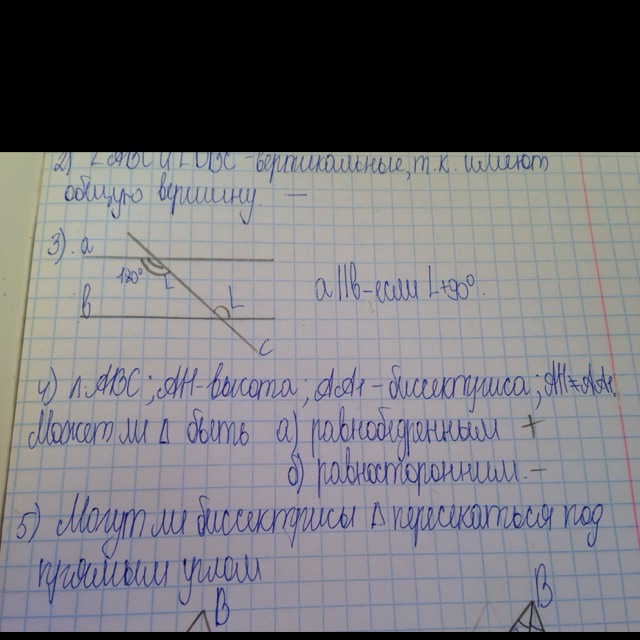 2) ∠ABC и ∠DBC - вертикальные, т.к. имеют
общую вершину —
3). a
120°
L
a||b - если L=90°.
b
L
c
4) Δ ABC; AH - высота; AA₁ - биссектриса; AH≠AA₁
Может ли Δ быть а) равнобедренным +
б) равносторонним. -
5) Могут ли биссектрисы Δ пересекаться под
прямым углом
B
B